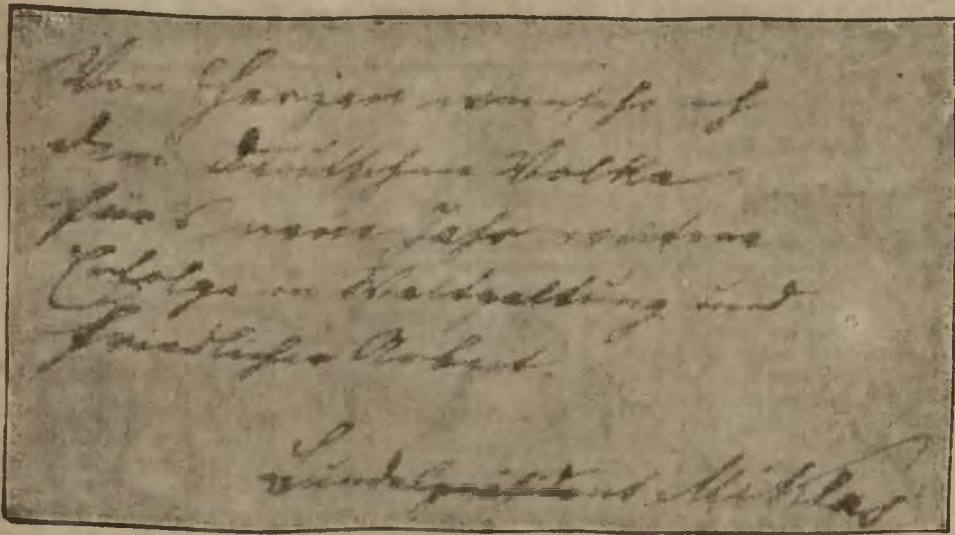 Von Herzen wünsche ich
dem Deutschen Volke
für's neue Jahr weitere
Erfolge in Weltgeltung und
friedlicher Arbeit.
Bundespräsident Miklas